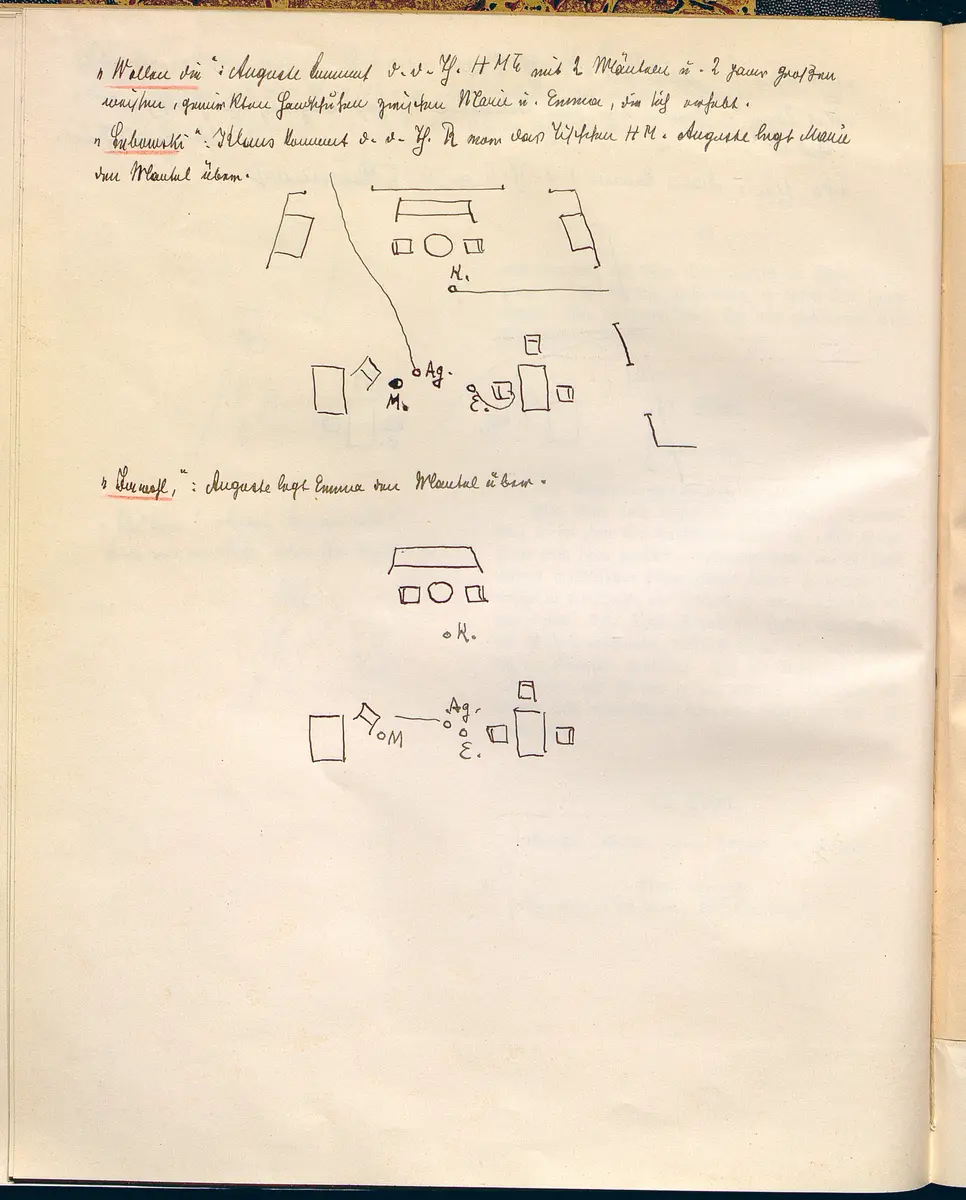 „Wollen die“: Auguste kommt d. d. Th. H M L mit 2 Mänteln u. 2 Paar großen
weißen, gewirkten Handschuhen zwischen Marie u. Emma, die sich erhebt.
„Lubowski“: Klaus kommt d. d. Th. R vorn das Tischchen H M. Auguste legt Marie
den Mantel über.
K.
Ag.
M.
E.
„Jawohl,“: Auguste legt Emma den Mantel über.
K.
Ag.
M
E.